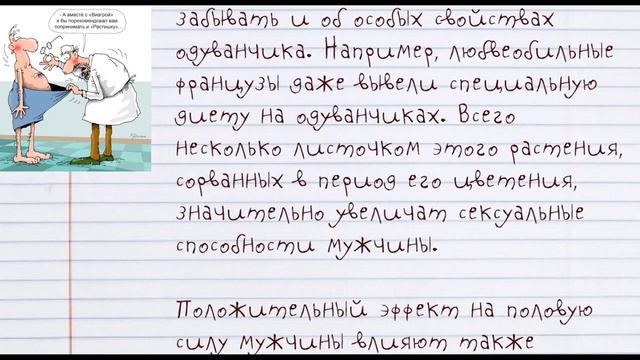 - А вместе с «Виагрой»
я бы порекомендовал вам
попринимать и «Растишку»...
забывать и об особых свойствах
одуванчика. Например, любвеобильные
французы даже вывели специальную
диету на одуванчиках. Всего
несколько листочком этого растения,
сорванных в период его цветения,
значительно увеличат сексуальные
способности мужчины.
Положительный эффект на половую
силу мужчины влияют также